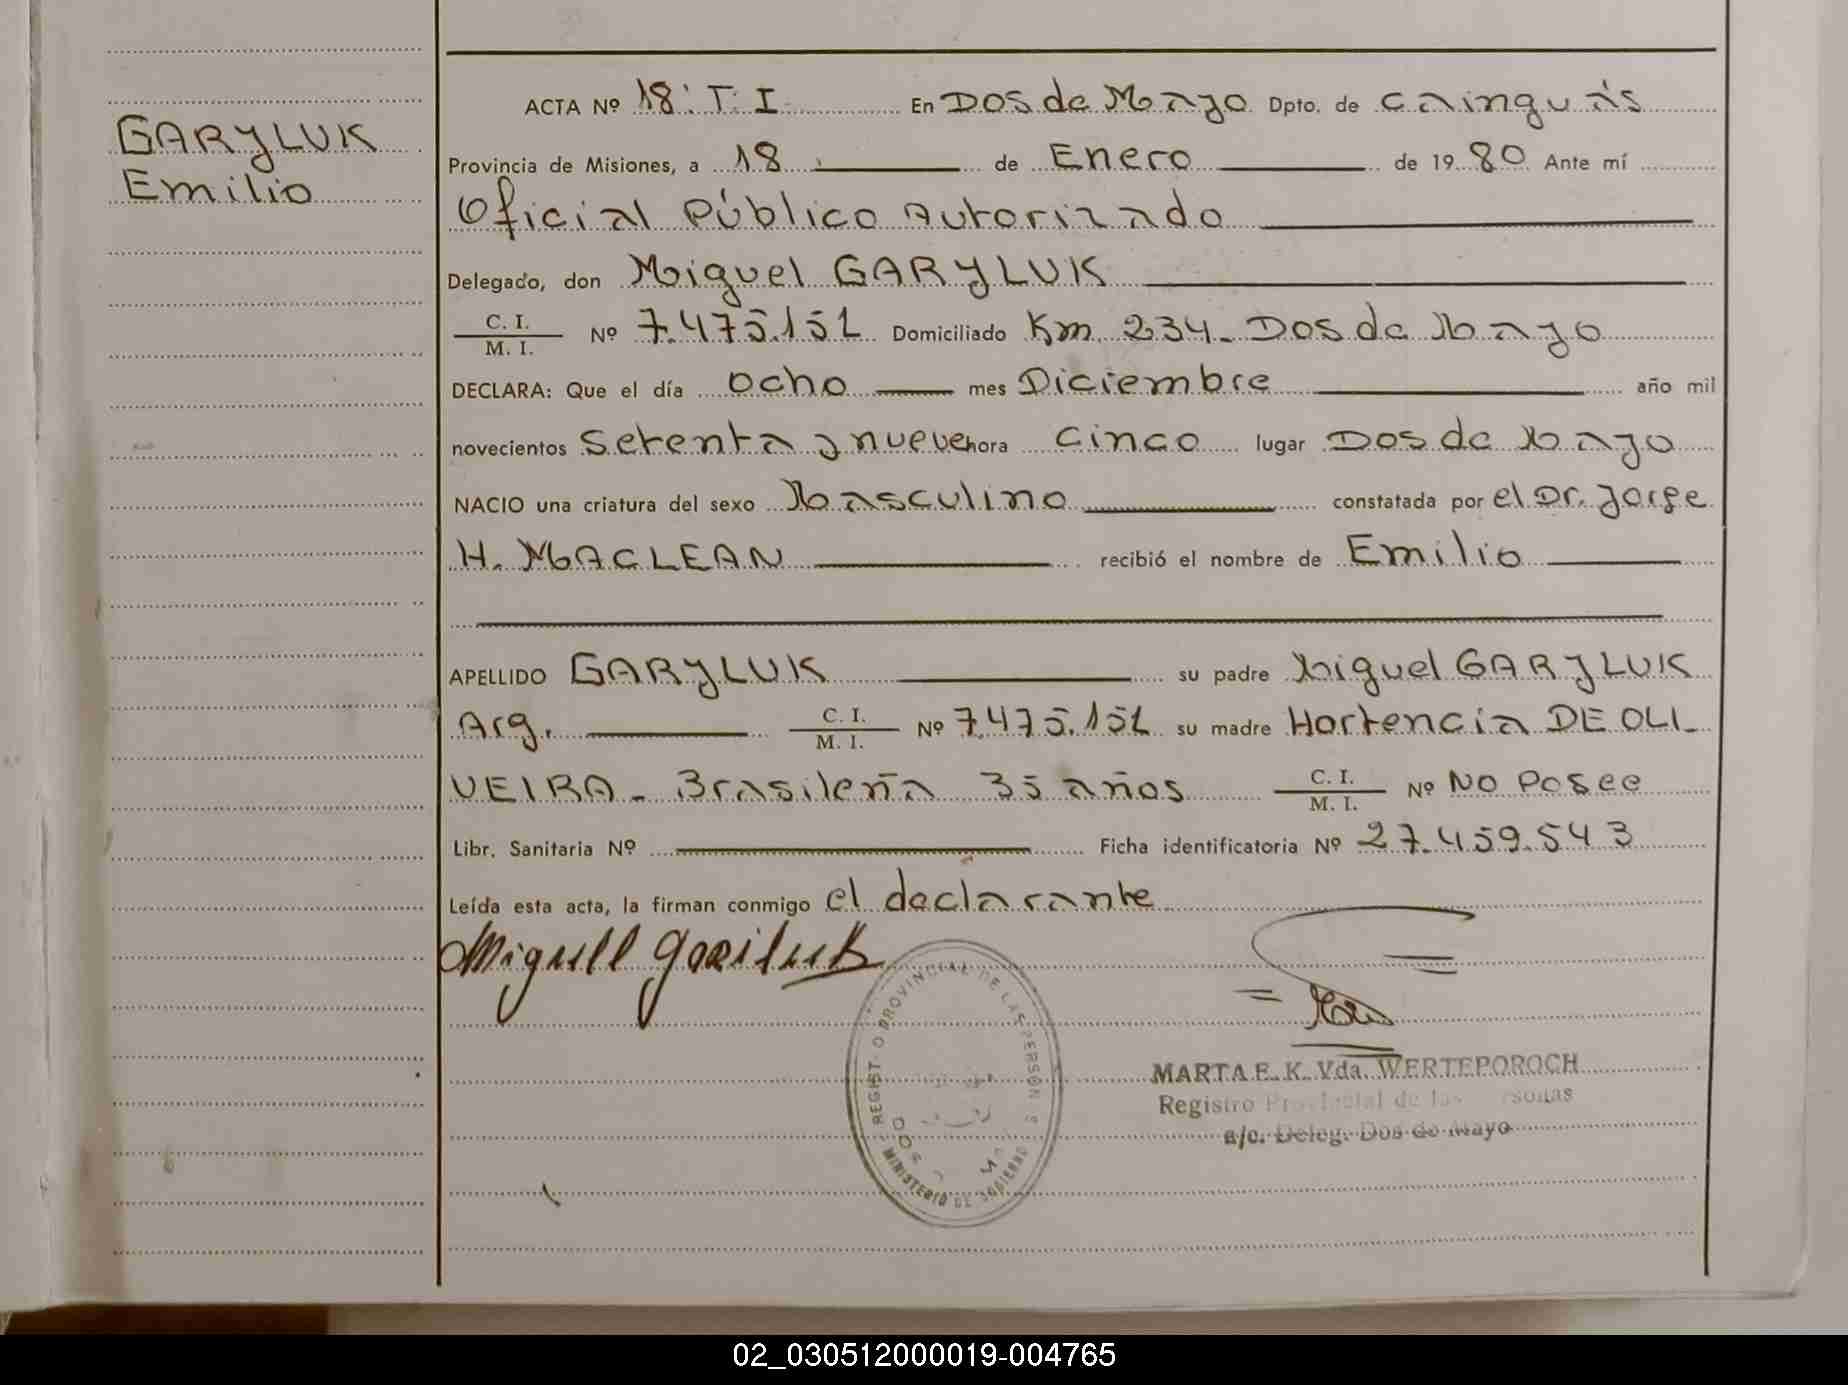 GARYLUK
Emilio
ACTA Nº 18. T. I En Dos de Mayo Dpto. de Cainguás
Provincia de Misiones, a 18 de Enero de 1980 Ante mí
Oficial Público Autorizado
Delegado, don Miguel GARYLUK
C. I. / M. I. Nº 7.475.151 Domiciliado Km. 234. Dos de Mayo
DECLARA: Que el día ocho mes Diciembre año mil
novecientos setenta y nueve hora cinco lugar Dos de Mayo
NACIO una criatura del sexo Masculino constatada por el Dr. Jorge
H. MACLEAN recibió el nombre de Emilio
APELLIDO GARYLUK su padre Miguel GARYLUK
Arg. C. I. / M. I. Nº 7.475.151 su madre Hortencia DE OLI-
VEIRA - Brasileña 35 años C. I. / M. I. Nº NO Posee
Libr. Sanitaria Nº Ficha identificatoria Nº 27.459.543
Leída esta acta, la firman conmigo el declarante
Miguell Gariluk
REGISTRO PROVINCIAL DE LAS PERSONAS
MINISTERIO DE GOBIERNO
MARTA E. K. Vda. WERTEPOROCH
Registro Provincial de las Personas
a/c. Deleg. Dos de Mayo
02_030512000019-004765